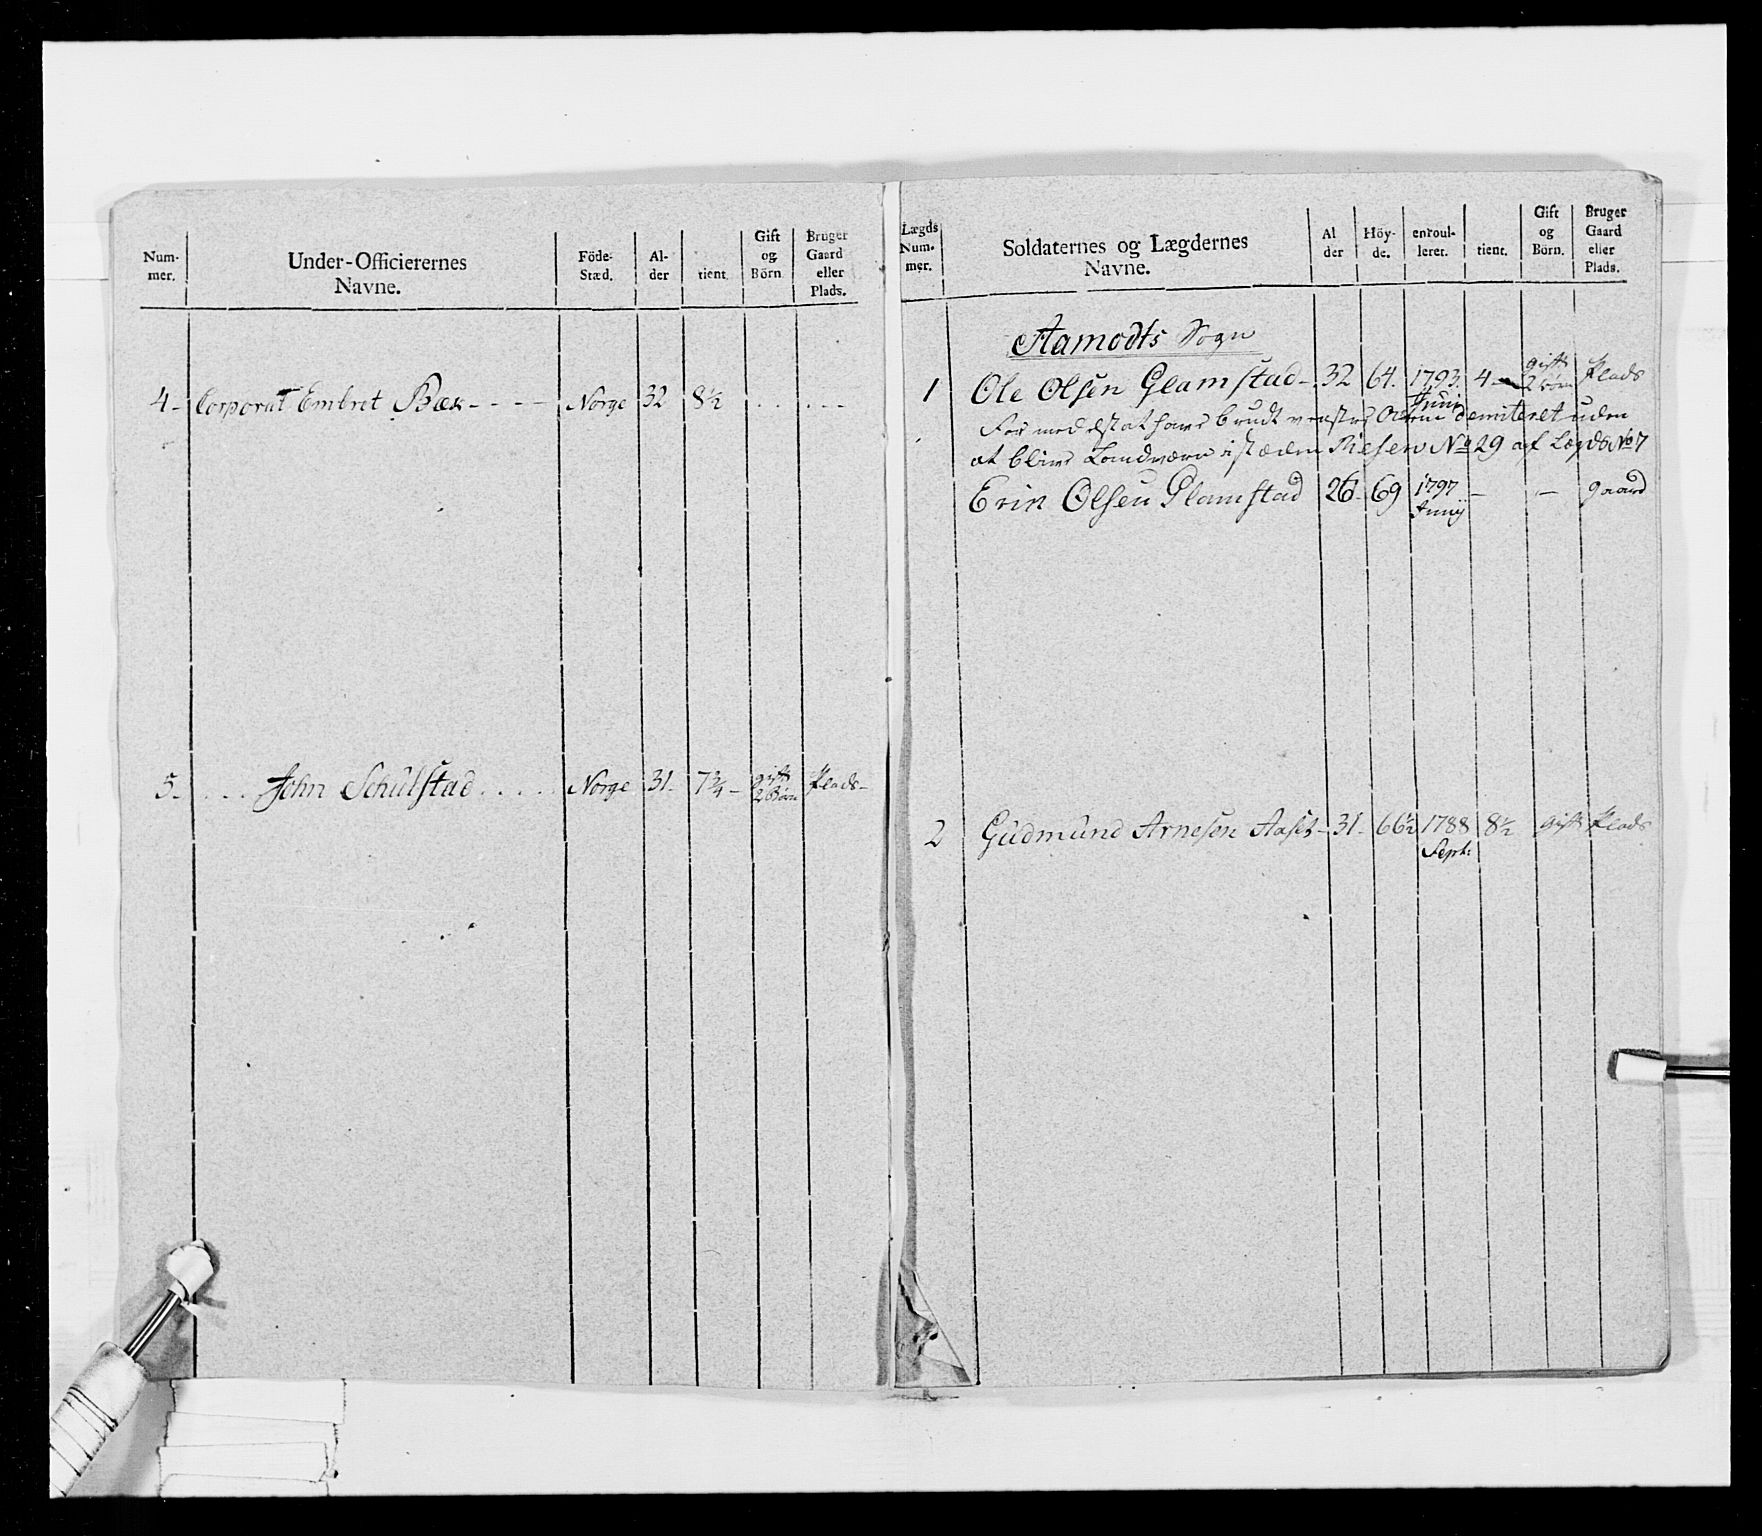 Num-
mer.
Under-Officierernes
Navne.
Föde-
Stæd.
Al-
der
tient.
Gift
og
Börn
Bruger
Gaard
eller
Plads.
4- Corporal Embret Bæk - - - - Norge 32 8½ . . . . - -
5- . . . . John Schulstad . . . . . Norge 31- 7¾ - gift 2 Børn Plads-
Lægds
Num-
mer.
Soldaternes og Lægdernes
Navne.
Al
der
Höy-
de.
enroul-
leret.
tient.
Gift
og
Börn.
Bruger
Gaard
eller
Plads.
Aamodts Sogn
1 Ole Olsen Glamstad- 32 64. 1793. Junii 4 - gift 2 Børn Plads
Formedelst at have brudt venstre demiteret uden
at blive Landværn isteden No 29 af Lægd No 7
Erik Olsen Glamstad 26- 69 1797 Junij - - gaard
2 Gudmund Arnesen Aaset- 31- 66½ 1788 Sept: 8½ gift Plads